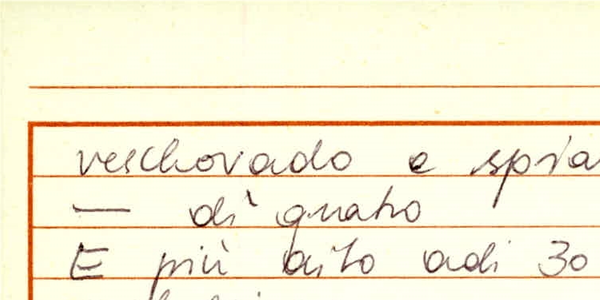 veschovado e spia
— dì quatro
E più aito adi 30